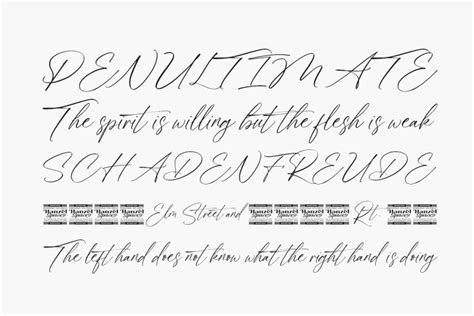 PENULTIMATE
The spirit is willing but the flesh is weak
SCHADENFREUDE
Elm Street and Rd.
The left hand does not know what the right hand is doing